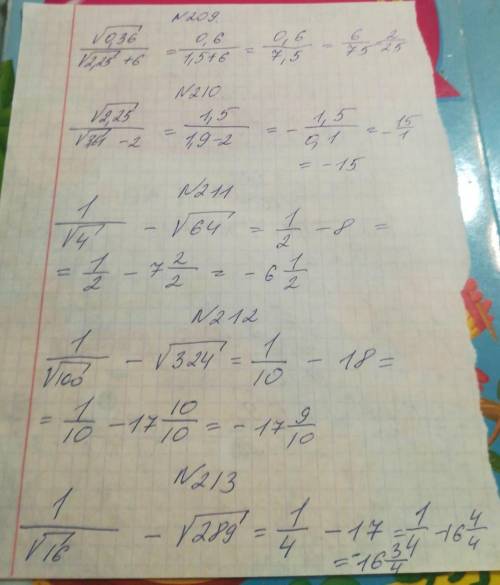 N209.
√0,36 / (√2,25 + 6) = 0,6 / (1,5+6) = 0,6 / 7,5 = 6/75 2/25
N210
√2,25 / (√361 - 2) = 1,5 / (1,9-2) = - 1,5 / 0,1 = - 15/1
= -15
N211
1/√4 - √64 = 1/2 - 8 =
= 1/2 - 7 2/2 = - 6 1/2
N212
1/√100 - √324 = 1/10 - 18 =
= 1/10 - 17 10/10 = - 17 9/10
N213
1/√16 - √289 = 1/4 - 17 = 1/4 - 16 4/4
= -16 3/4